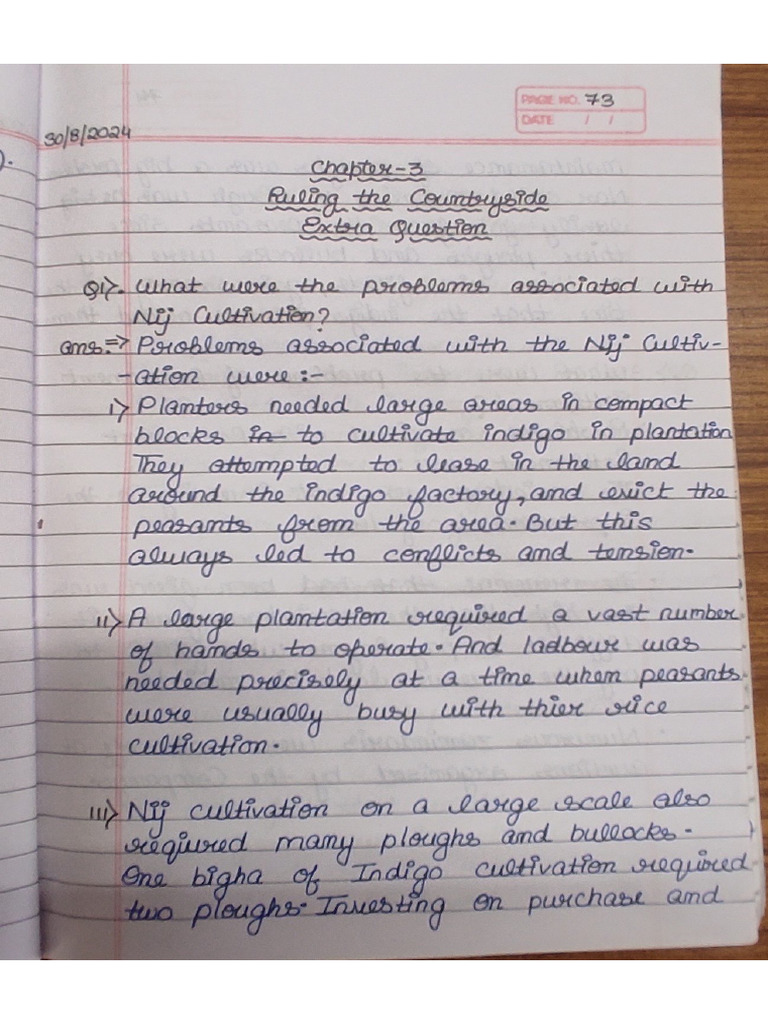 PAGE NO. 73
DATE / /
30/8/2024
Chapter-3
Ruling the Countryside
Extra Question
Q1>. What were the problems associated with
Nij Cultivation?
ans:=> Problems associated with the Nij Cultiv-
-ation were:-
i> Planters needed large areas in compact
blocks in to cultivate indigo in plantation
They attempted to lease in the land
around the indigo factory, and evict the
peasants from the area. But this
always led to conflicts and tension.
ii> A large plantation required a vast number
of hands to operate. And ladbour was
needed precisely at a time when peasants
were usually busy with thier rice
cultivation.
iii> Nij cultivation on a large scale also
reqiured many ploughs and bullocks.
One bigha of Indigo cultivation required
two ploughs. Investing on purchase and